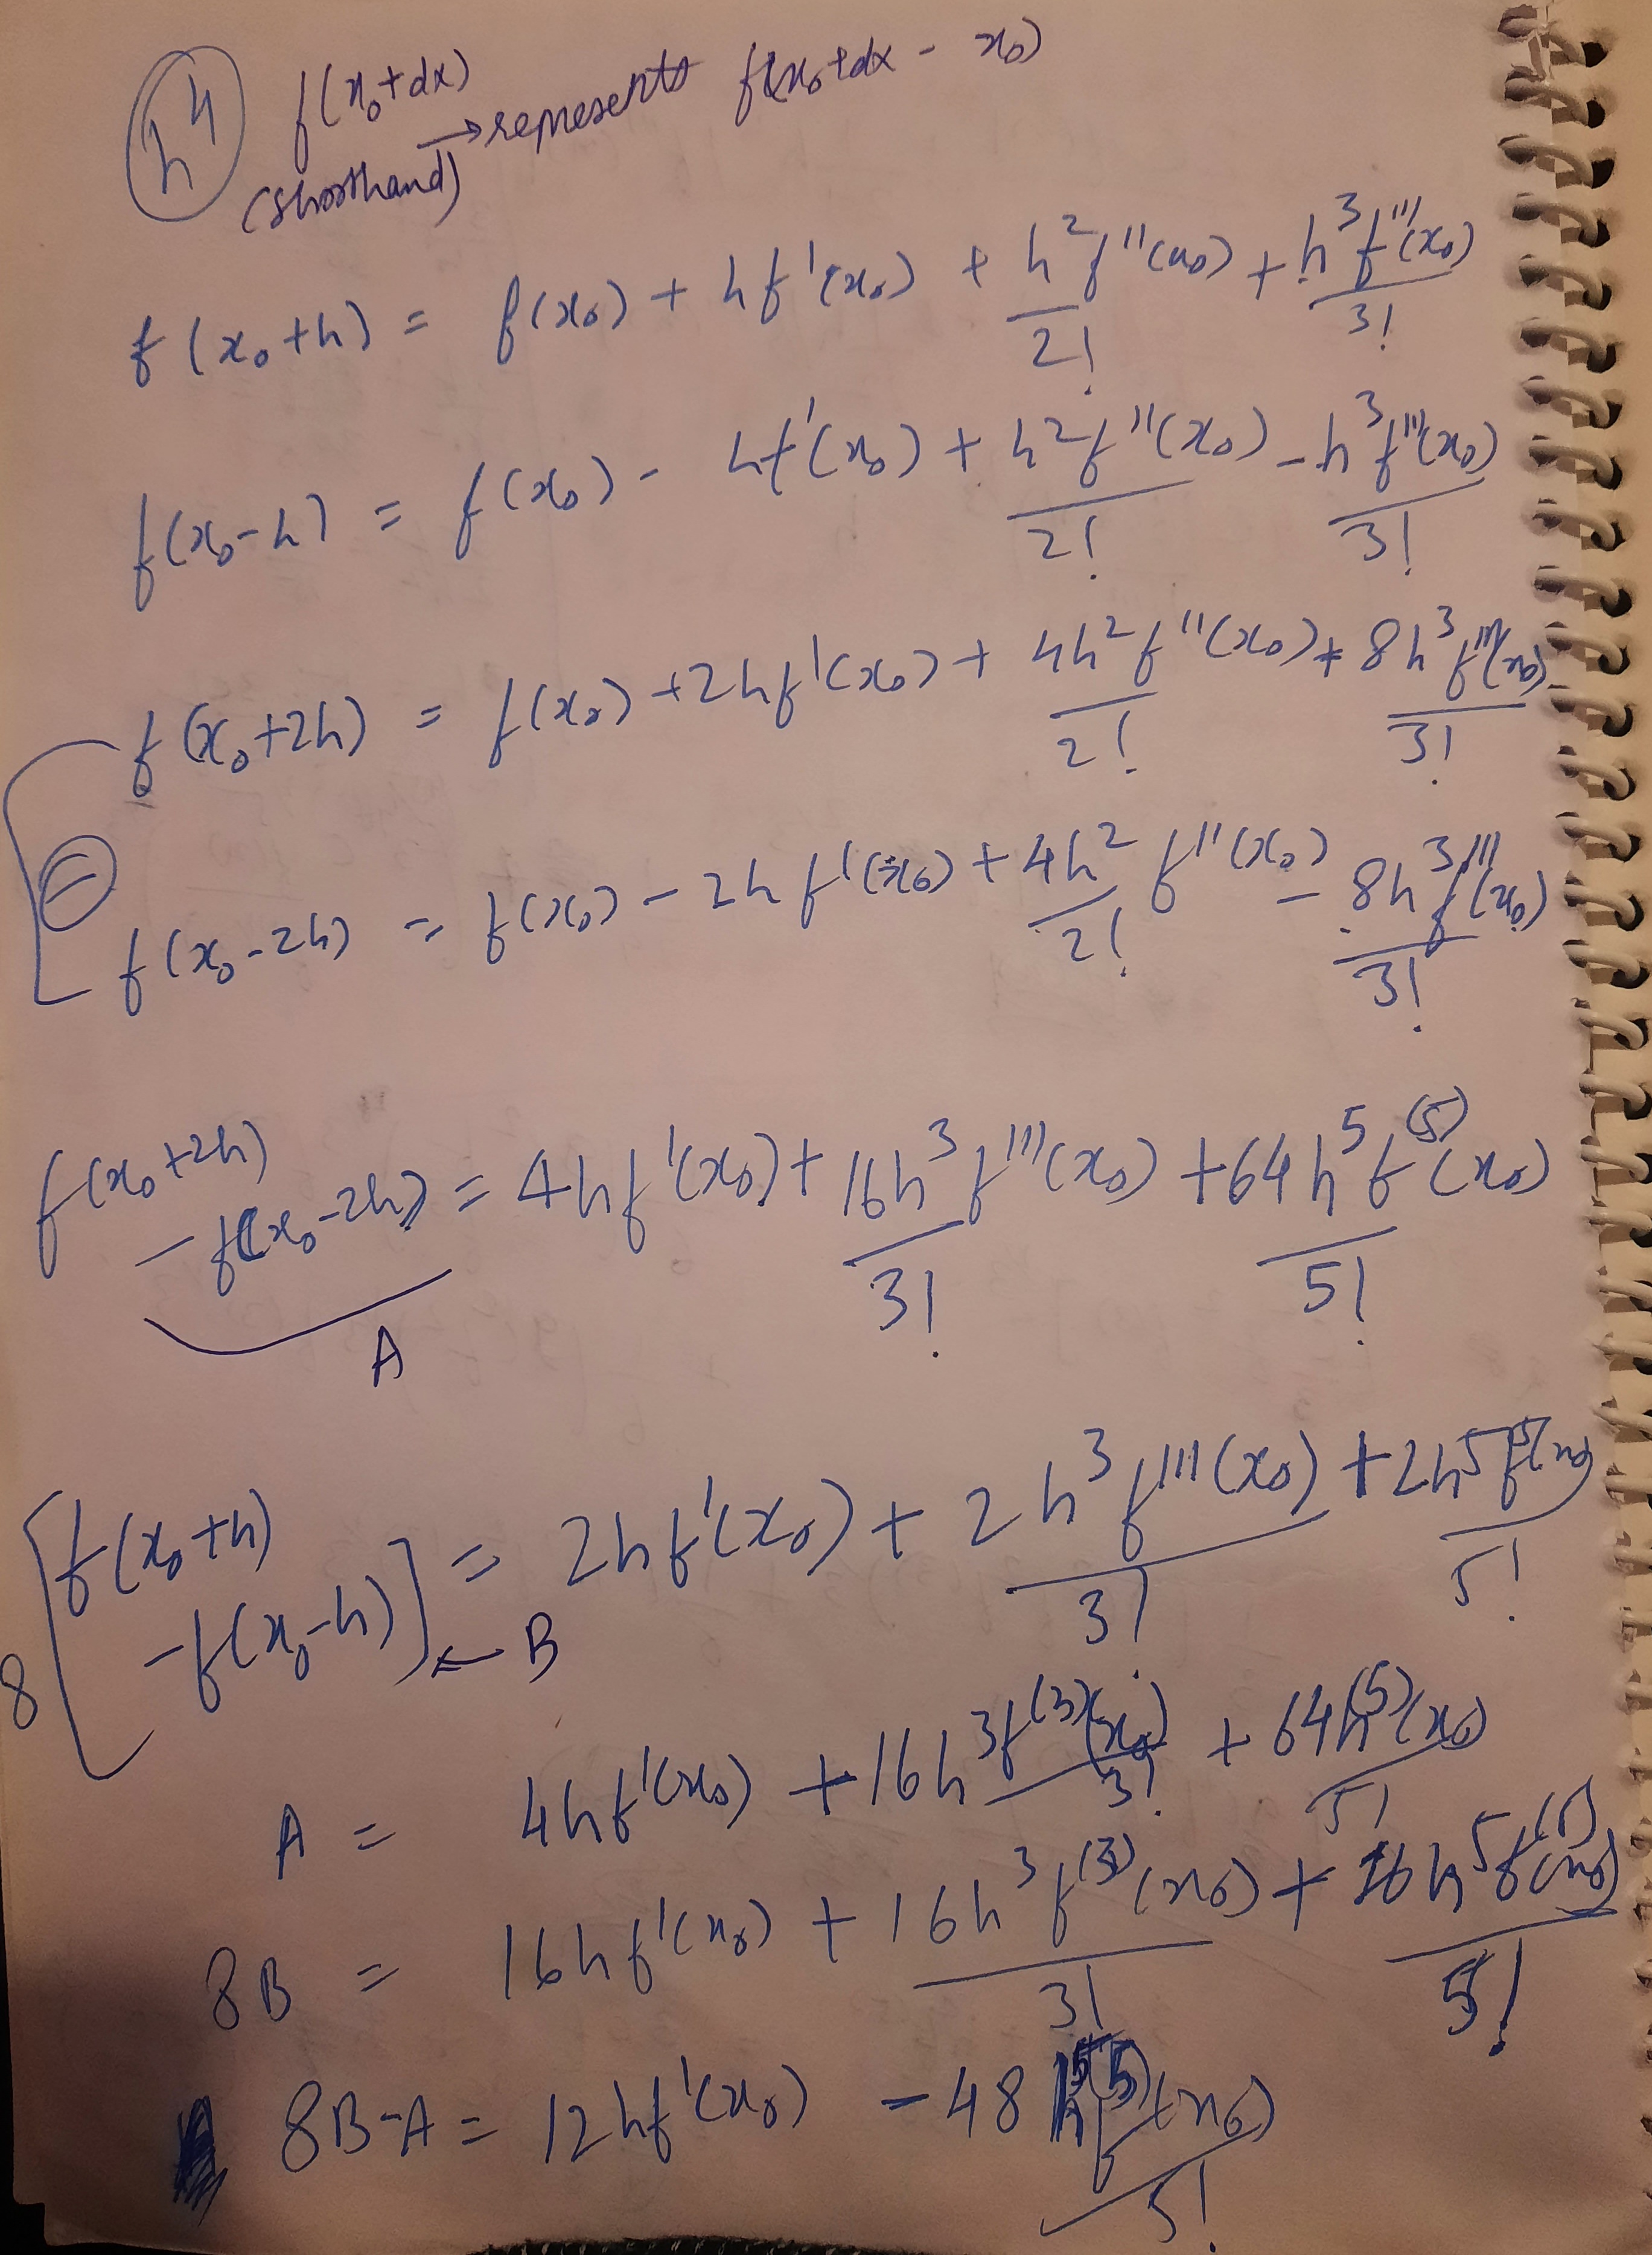 h⁴ f(x₀+dx) → represents f(x₀+dx - x₀)
(shorthand)
f(x₀+h) = f(x₀) + hf'(x₀) + h²f''(x₀)/2! + h³f'''(x₀)/3!
f(x₀-h) = f(x₀) - hf'(x₀) + h²f''(x₀)/2! - h³f'''(x₀)/3!
f(x₀+2h) = f(x₀) + 2hf'(x₀) + 4h²f''(x₀)/2! + 8h³f'''(x₀)/3!
f(x₀-2h) = f(x₀) - 2hf'(x₀) + 4h²/2! f''(x₀) - 8h³f'''(x₀)/3!
f(x₀+2h) - f(x₀-2h) = 4hf'(x₀) + 16h³f'''(x₀)/3! + 64h⁵f⁽⁵⁾(x₀)/5!
A
8[f(x₀+h) - f(x₀-h)] = 2hf'(x₀) + 2h³f'''(x₀)/3! + 2h⁵f⁽⁵⁾(x₀)/5!
← B
A = 4hf'(x₀) + 16h³f⁽³⁾(x₀)/3! + 64h⁽⁵⁾(x₀)/5!
8B = 16hf'(x₀) + 16h³f⁽³⁾(x₀)/3! + 16h⁵f⁽⁵⁾(x₀)/5!
8B-A = 12hf'(x₀) - 48h⁵f⁽⁵⁾(x₀)/5!